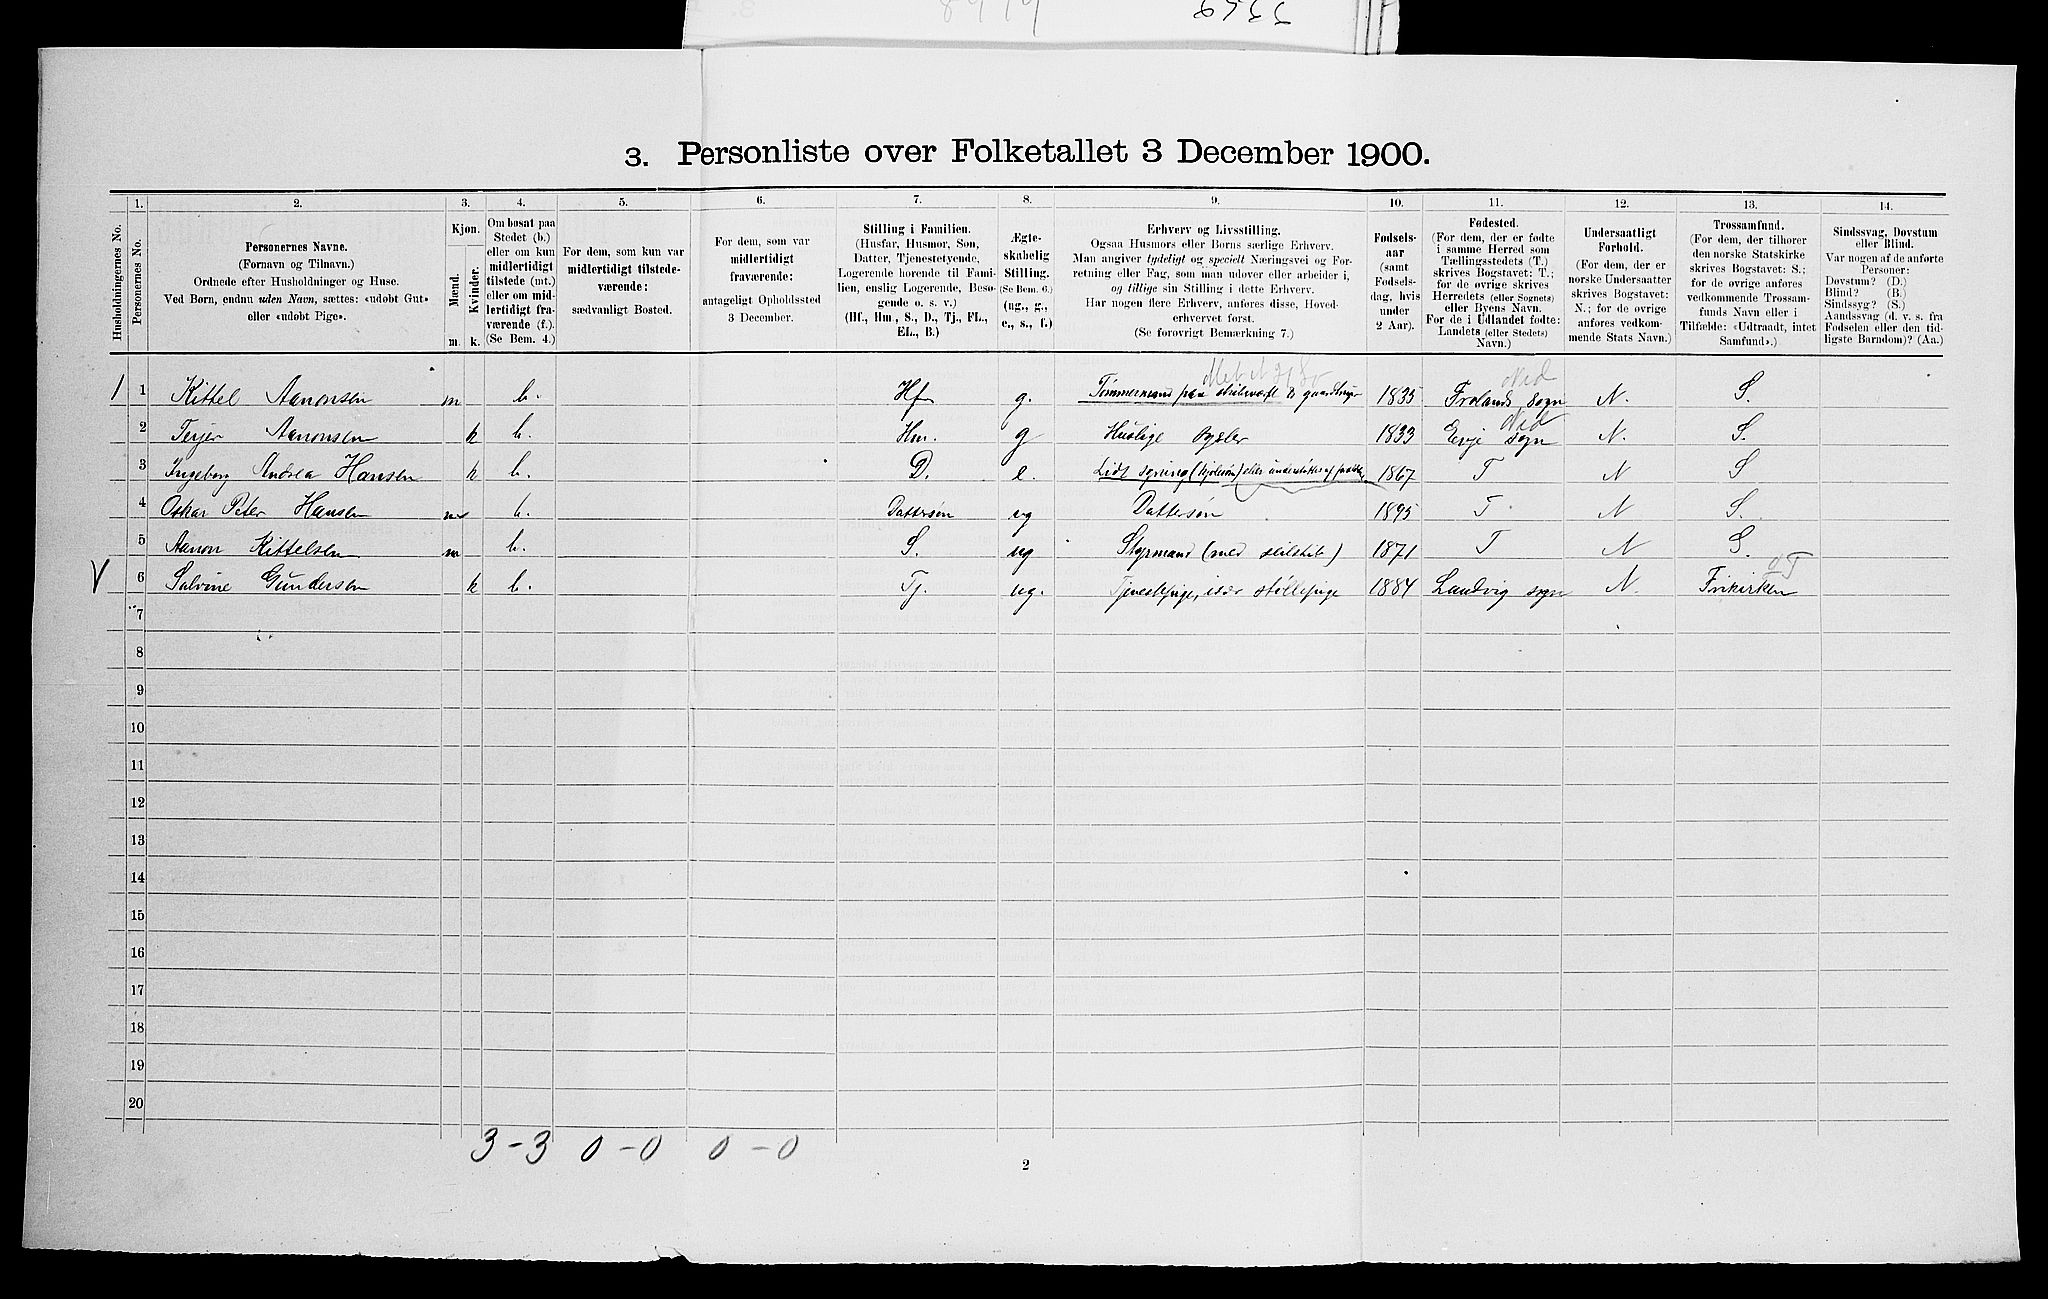 3. Personliste over Folketallet 3 December 1900.
Husholdningernes No.
1.
Personernes No.
2.
Personernes Navne.
(Fornavn og Tilnavn.)
Ordnede efter Husholdninger og Huse.
Ved Børn, endnu uden Navn, sættes: «udøbt Gut»
eller «udøbt Pige».
3.
Kjøn.
Mænd.
Kvinder.
m. k.
4.
Om bosat paa
Stedet (b.)
eller om kun
midlertidigt
tilstede (mt.)
eller om mid-
lertidigt fra-
værende (f.).
(Se Bem. 4.)
5.
For dem, som kun var
midlertidigt tilstede-
værende:
sædvanligt Bosted.
6.
For dem, som var
midlertidigt
fraværende:
antageligt Opholdssted
3 December.
7.
Stilling i Familien.
(Husfar, Husmor, Søn,
Datter, Tjenestetyende,
Logerende hørende til Fami-
lien, enslig Logerende, Besø-
gende o. s. v.)
(Hf., Hm., S., D., Tj., FL.,
EL., B.)
8.
Ægte-
skabelig
Stilling.
(Se Bem. 6.)
(ug., g.,
e., s., f.)
9.
Erhverv og Livsstilling.
Ogsaa Husmors eller Børns særlige Erhverv.
Man angiver tydeligt og specielt Næringsvei og For-
retning eller Fag, som man udøver eller arbeider i,
og tillige sin Stilling i dette Erhverv.
Har nogen flere Erhverv, anføres disse, Hoved-
erhvervet først.
(Se forøvrigt Bemærkning 7.)
10.
Fødsels-
aar
(samt
Fødsels-
dag, hvis
under
2 Aar).
11.
Fødested.
(For dem, der er fødte
i samme Herred som
Tællingsstedets (T.)
skrives Bogstavet: T.;
for de øvrige skrives
Herredets (eller Sognets)
eller Byens Navn.
For de i Udlandet fødte:
Landets (eller Stedets)
Navn.)
12.
Undersaatligt
Forhold.
(For dem, der er
norske Undersaatter
skrives Bogstavet:
N.; for de øvrige
anføres vedkom-
mende Stats Navn.)
13.
Trossamfund.
(For dem, der tilhører
den norske Statskirke
skrives Bogstavet: S.;
for de øvrige anføres
vedkommende Trossam-
funds Navn eller i
Tilfælde: «Udtraadt, intet
Samfund».)
14.
Sindssvag, Døvstum
eller Blind.
Var nogen af de anførte
Personer:
Døvstum? (D.)
Blind? (B.)
Sindssyg? (S.)
Aandssvag (d. v. s. fra
Fødselen eller den tid-
ligste Barndom)? (Aa.)
1 1 Kittel Aanonsen m b. Hf g. Tømmermand paa 1835 Frolands sogn N. S.
2 Terjer Aanonsen k b. Hm. g Huslige sysler 1833 Evje sogn N. S.
3 Ingeborg Andrea Hansen k b. D. e. Lidt syning 1867 T N S
4 Oskar Peter Hansen m b. Dattersøn ug Dattersøn 1895 T N S.
5 Aanon Kittelsen m b. S. ug Styrmand (med seilskib) 1871 T N S.
6 Salvine Gundersen k b. Tj. ug. Tjenestepige, især stellepige 1884 Landvig sogn N. Frikirken
7
8
9
10
11
12
13
14
15
16
17
18
19
20
3-3 0-0 0-0
2